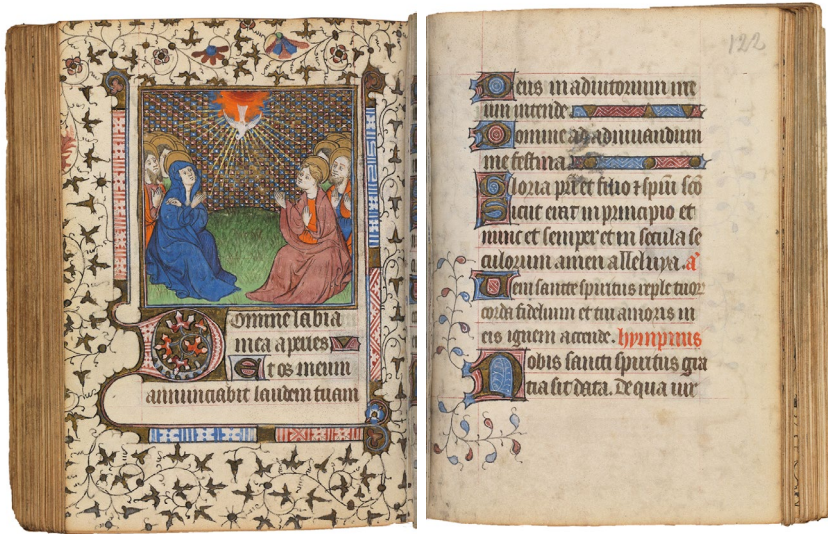 Domine labia
mea aperies
Et os meum
annunciabit laudem tuam
122
Deus in adiutorium me
um intende
Domine ad adiuuandum
me festina
Gloria pr̄i et filio ⁊ spūi sc̄o
Sicut erat in principio et
nunc et semper et in secula se
culorum amen alleluya. a͛
Ueni sancte spiritus reple tuor
corda fidelium et tui amoris in
eis ignem accende. hympnus
Nobis sancti spiritus gra
tia sit data. De qua uir